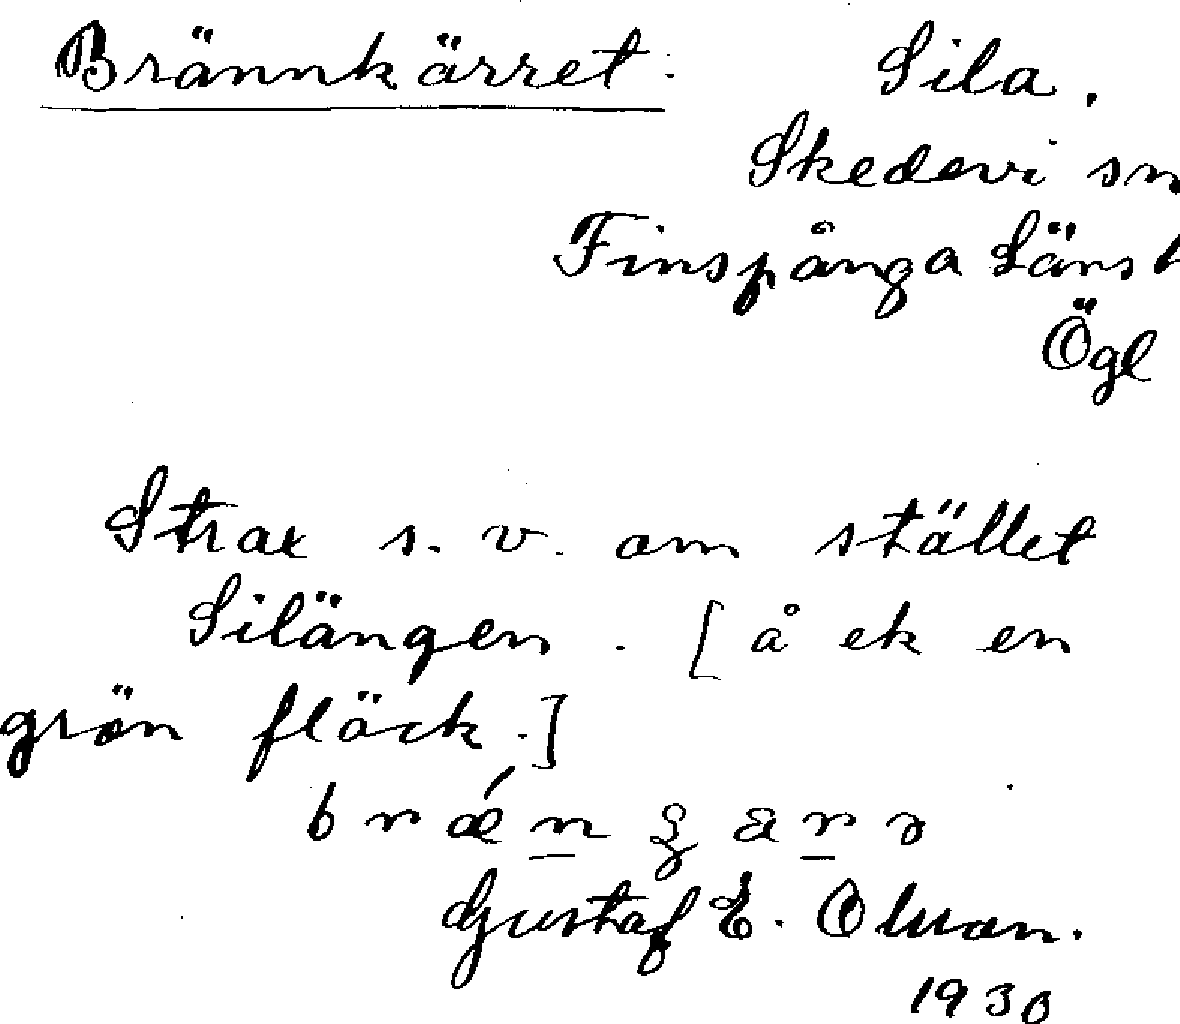 Brännkärret. Sila.
Skedevi sn
Finspånga Länst
Ögl
Strax s. v. om stället
Silängen. [å ek en
grön fläck.]
Gustaf E. Olsson.
1930